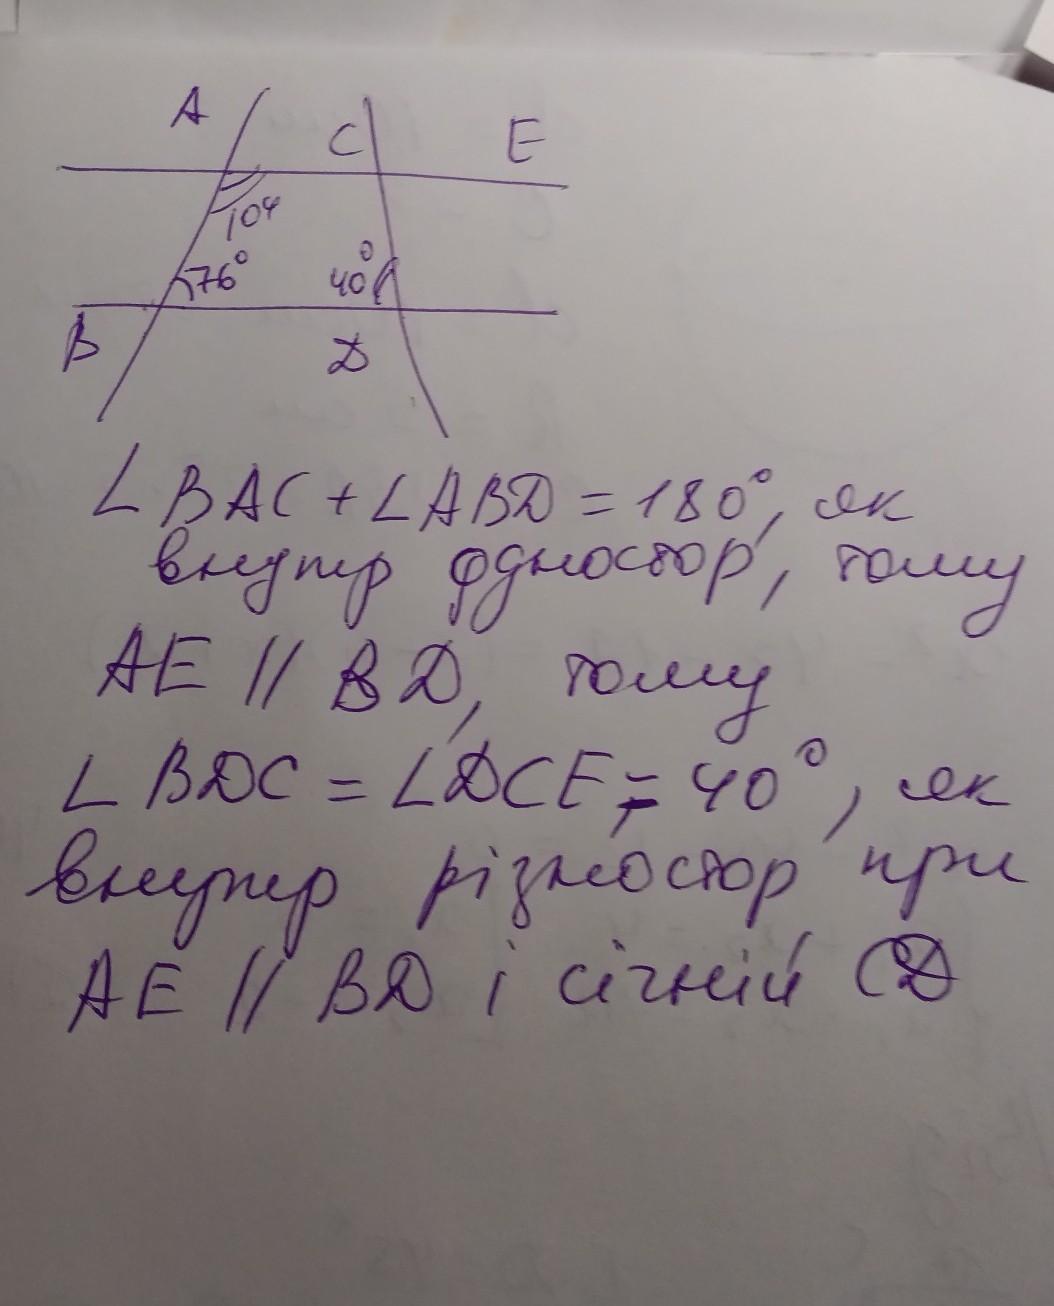 A
C
E
104
76°
40°
B
D
∠BAC + ∠ABD = 180°, як
внутр одностор, тому
AE || BD, тому
∠BDC = ∠DCE = 40°, як
внутр різностор при
AE || BD і січній CD